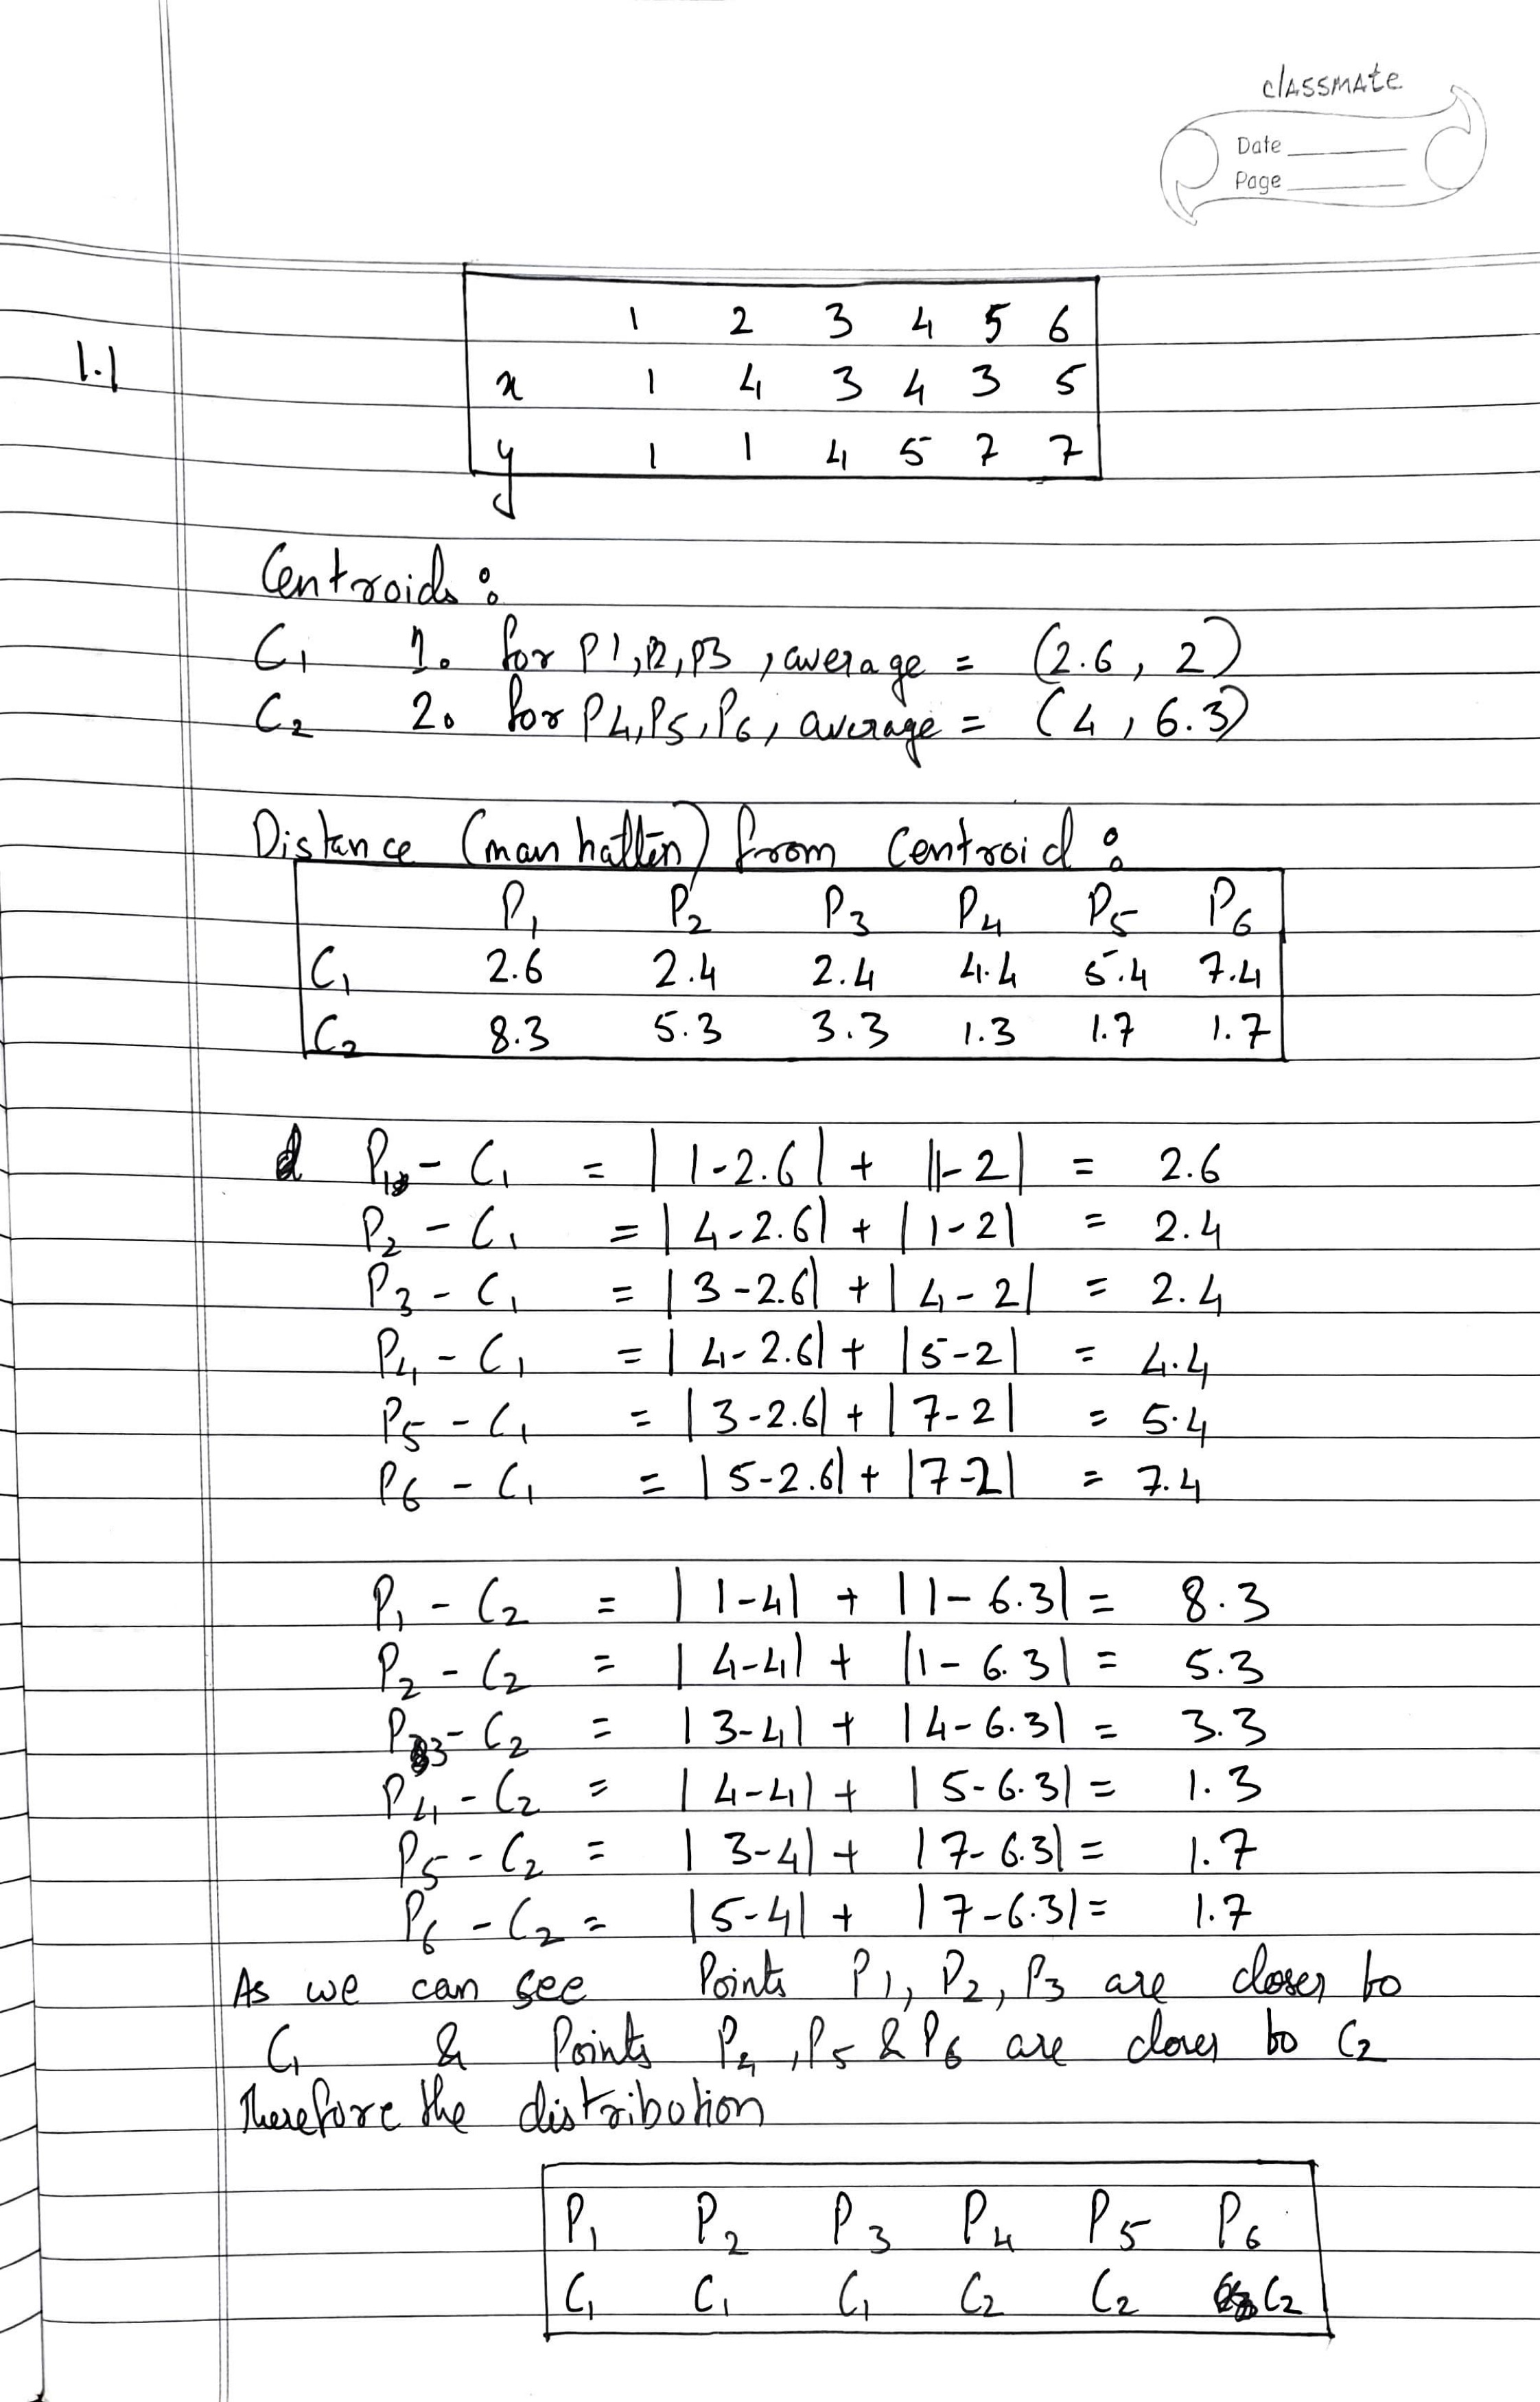 classmate
Date
Page
1 2 3 4 5 6
1.1
x 1 4 3 4 3 5
y 1 1 4 5 7 7
Centroids :
C1 1. for P1, P2, P3, average = (2.6, 2)
C2 2. for P4, P5, P6, average = (4, 6.3)
Distance (manhatten) from Centroid :
P1 P2 P3 P4 P5 P6
C1 2.6 2.4 2.4 4.4 5.4 7.4
C2 8.3 5.3 3.3 1.3 1.7 1.7
d P1 - C1 = |1-2.6| + |1-2| = 2.6
P2 - C1 = |4-2.6| + |1-2| = 2.4
P3 - C1 = |3-2.6| + |4-2| = 2.4
P4 - C1 = |4-2.6| + |5-2| = 4.4
P5 - C1 = |3-2.6| + |7-2| = 5.4
P6 - C1 = |5-2.6| + |7-2| = 7.4
P1 - C2 = |1-4| + |1-6.3| = 8.3
P2 - C2 = |4-4| + |1-6.3| = 5.3
P3 - C2 = |3-4| + |4-6.3| = 3.3
P4 - C2 = |4-4| + |5-6.3| = 1.3
P5 - C2 = |3-4| + |7-6.3| = 1.7
P6 - C2 = |5-4| + |7-6.3| = 1.7
As we can see Points P1, P2, P3 are closer to
C1 & Points P4, P5 & P6 are closer to C2
Therefore the distribution
P1 P2 P3 P4 P5 P6
C1 C1 C1 C2 C2 C2